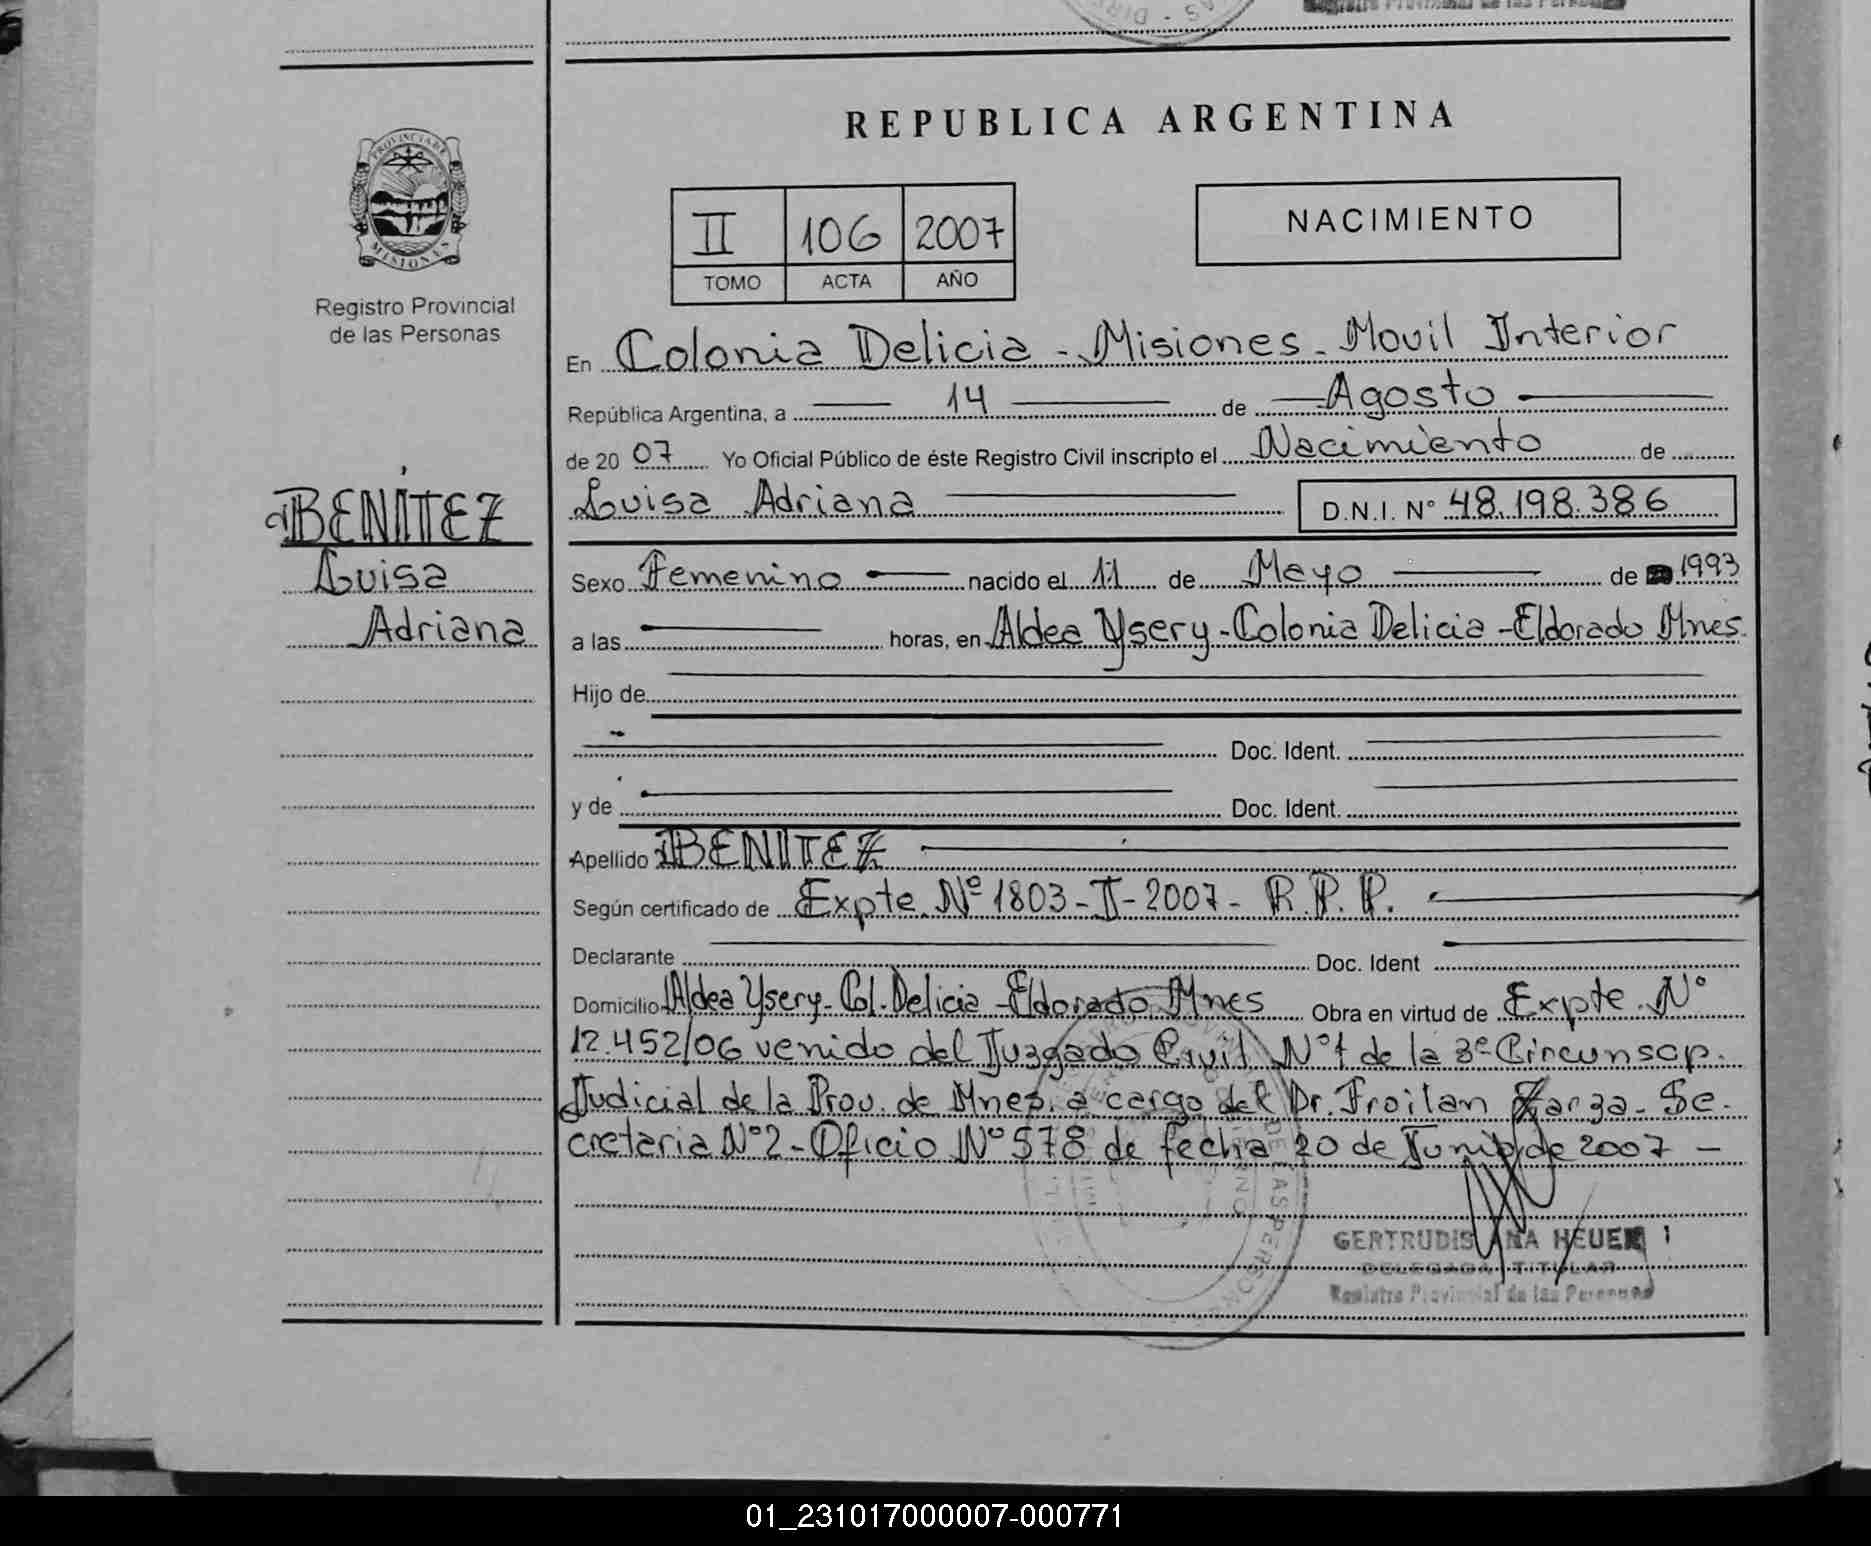 REPUBLICA ARGENTINA
PROVINCIA DE
MISIONES
Registro Provincial
de las Personas
II 106 2007
TOMO ACTA AÑO
NACIMIENTO
En Colonia Delicia - Misiones - Movil Interior
República Argentina, a 14 de Agosto
de 20 07 Yo Oficial Público de éste Registro Civil inscripto el Nacimiento de
Luisa Adriana D.N.I. N° 48.198.386
BENITEZ
Luisa
Adriana
Sexo Femenino nacido el 11 de Mayo de 1993
a las horas, en Aldea Ysery - Colonia Delicia - Eldorado Mnes.
Hijo de
Doc. Ident.
y de Doc. Ident.
Apellido BENITEZ
Según certificado de Expte. Nº 1803 - II - 2007 - R.P.P.
Declarante Doc. Ident
Domicilio Aldea Ysery - Col. Delicia - Eldorado Mnes Obra en virtud de Expte. N°
12.452/06 venido del Juzgado Civil N°1 de la 3ª Circunscp.
Judicial de la Prov. de Mnes. a cargo del Dr. Froilan Zarza - Se-
cretaria N°2 - Oficio N° 578 de fecha 20 de Junio de 2007 -
GERTRUDIS ANA HEUER
DELEGADA TITULAR
Registro Provincial de las Personas
01_231017000007-000771